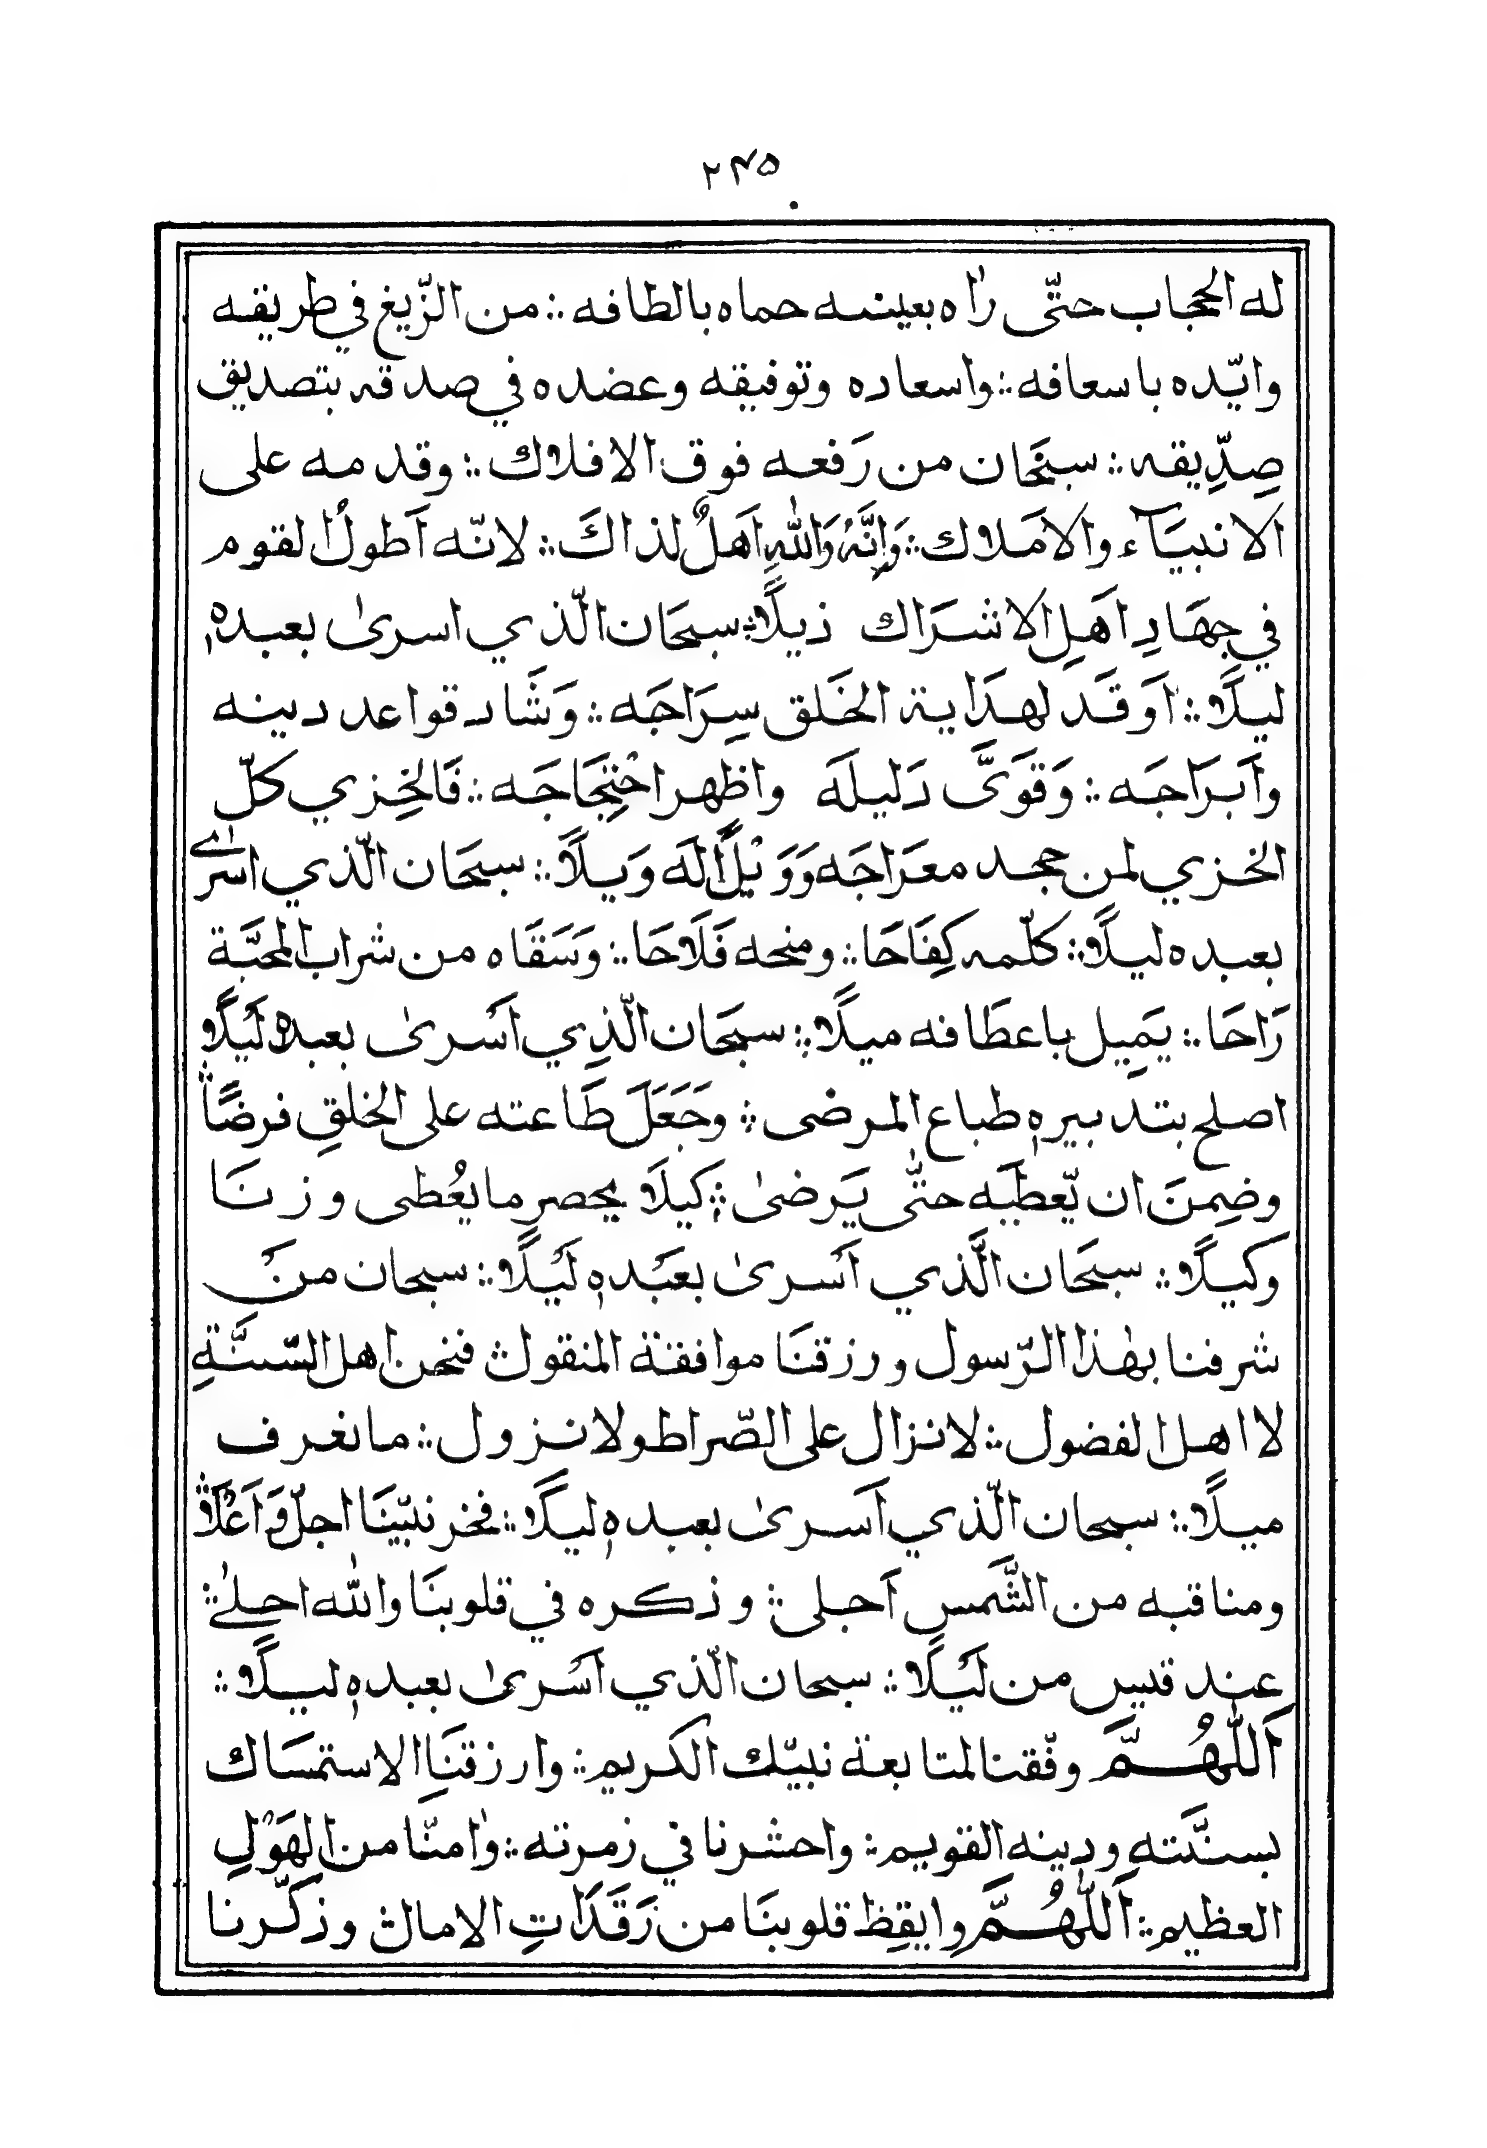 ۲۴۵
له الحجاب حتّى راٰه بعينه حماه بالطافه ؞ من الزّيغ في طريقه
وايّده باسعافه ؞ واسعاده وتوفيقه وعضده في صدقه بتصديق
صِدِّيقه ؞ سبحَان من رَفعه فوق الافلاك ؞ وقدمه على
الانبيَآء والامَلاك ؞ وَاِنَّهُ وَاللّٰهِ اَهلٌ لذاكَ ؞ لانّه اَطولُ القوم
في جهَادِ اَهلِ الاشرَاك ذيلًا ؞ سبحَان الّذي اسرىٰ بعبدهٖ
ليلًا ؞ اَوقَد لهدَاية الخَلق سِرَاجَه ؞ وَشَاد قواعد دينه
واَبرَاجَه ؞ وَقوَّى دَليلَه واظهر احْتِجَاجَه ؞ فَالخِزي كلّ
الخزي لمن جحد معرَاجَه وَوَيْلًا لَه وَيلًا ؞ سبحَان الّذي اسرٰى
بعبده ليلًا ؞ كلّمه كِفَاحَا ؞ ومنحه فَلَاحَا ؞ وَسَقَاه من شراب المحبَّة
رَاحَا ؞ يَمِيل باعطَافه ميلًا ؞ سبحَان الّذِي اَسْرىٰ بعبدهٖ لَيْلًا
اصلح بتدبيرهٖ طباع المرضى ؞ وجَعَلَ طَاعته على الخلقِ فرضًا ؞
وضِمنَ ان يّعطيَه حتّٰى يَرضىٰ ؞ كيلَا يحصر ما يُعْطى وزنَا
وكيلًا ؞ سبحَان الَّذي اَسْرىٰ بعَبْدهٖ لَيْلًا ؞ سبحان منْ
شرفنا بهٰذا الرّسول ورزقنَا موافقة المنقول ؞ فنحن اهل السّنَّةِ
لا اهل الفضول ؞ لا نزال على الصّراط ولا نزول ؞ ما نعرف
ميلًا ؞ سبحان الّذي اَسرىٰ بعبدهٖ ليلًا ؞ فخر نبيّنَا اجلّ وَاَعْلَا ؞
ومناقبه من الشَّمس اَجلى ؞ وذكره في قلوبنَا واللّٰه احلىٰ ؞
عند قيس من لَيْلًا ؞ سبحان الّذي اَسْرىٰ بعبدهٖ ليلًا ؞
اَللّٰهُمَّ وفّقنا لمتابعة نبيّك الكريم ؞ وارزقنَا الاستمسَاك
بسنَّتهٖ ودينه القويم ؞ واحشرنا في زمرته ؞ واٰمنّا من الهَوْلِ
العظيم ؞ اَللّٰهُمَّ وايقِظ قلوبنَا من رَقَدَاتِ الامال ؞ وذكّرنا